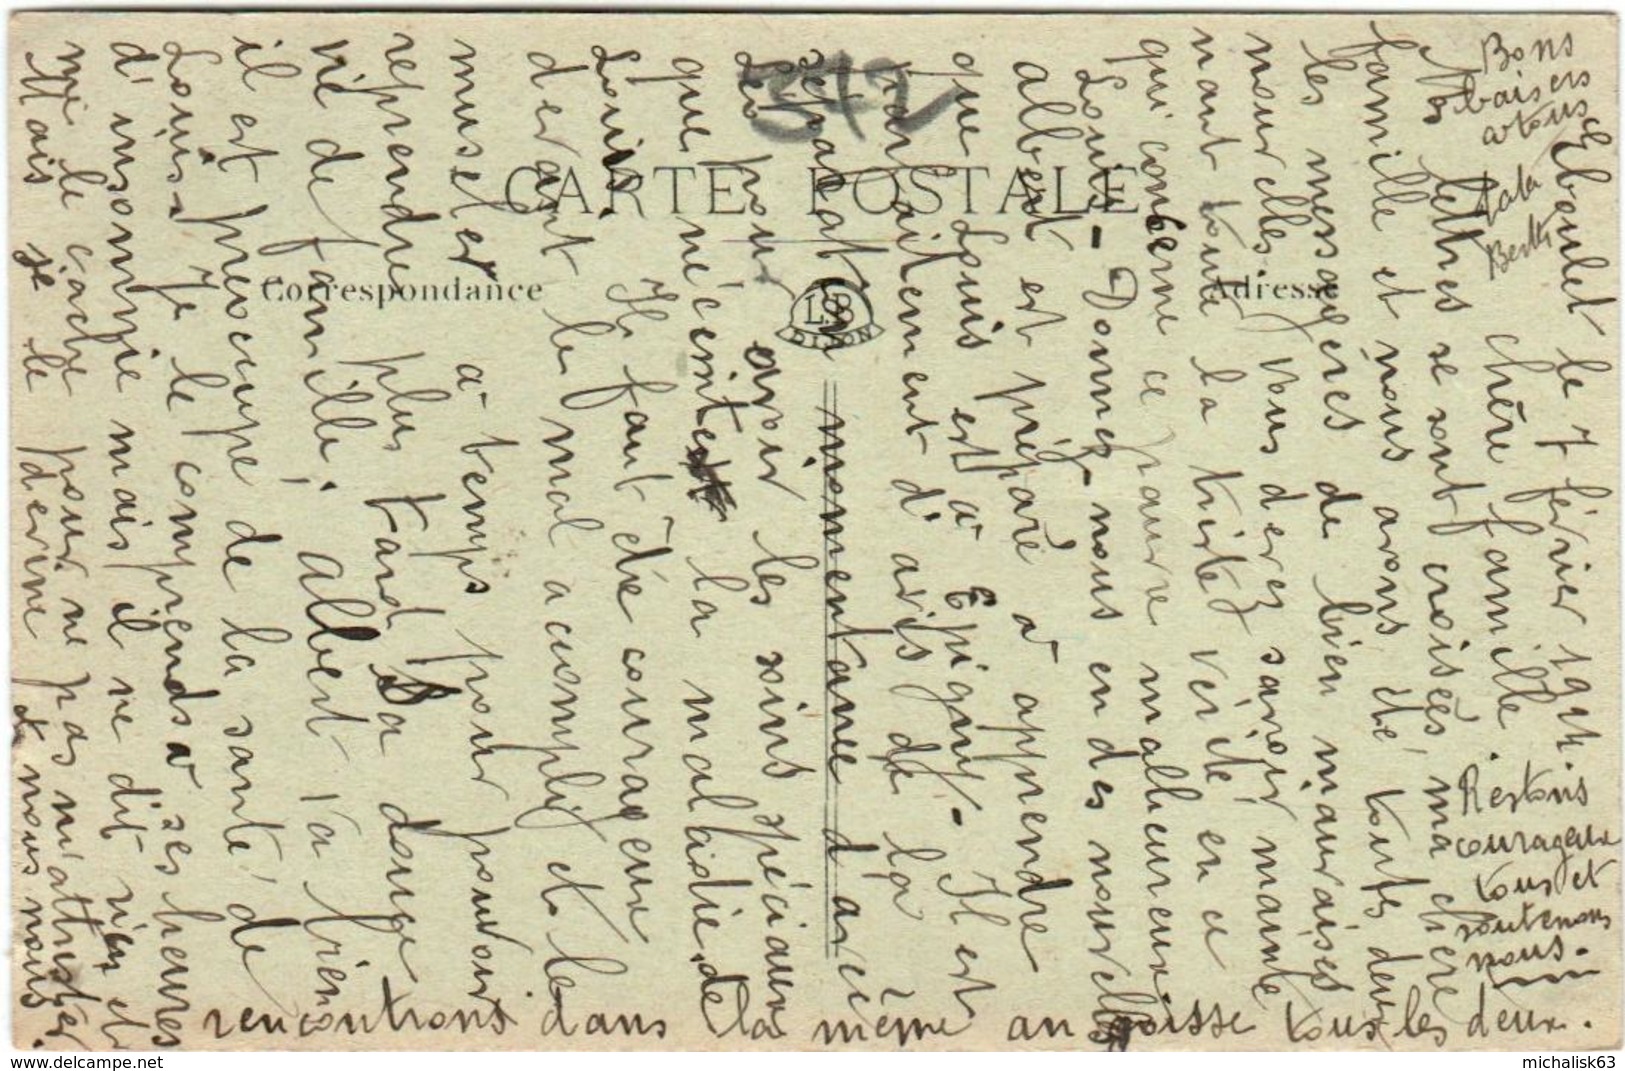 Eboulet le 7 février 1914.
chère famille.
Nos lettres se sont croisées, ma chère
famille et nous avons été toutes deux
les messagères de bien mauvaises
nouvelles. Vous devez savoir mainte
nant toute la triste vérité en ce
qui conserne ce pauvre malheureux
Louis - Donnez-nous en des nouvelles
albert est préparé à apprendre
que Louis est à Epigny - Il est
parfaitement d'avis de la
séparation momentanée d'avec
Léo pour avoir les soins spéciaux
que nécessite la maladie de
Louis. Il faut être courageux
devant le mal accomplit et le
museler à temps pour pouvoir
reprendre plus tard sa douce
vie de famille; albert va bien
il est préoccupé de la santé de
Louis. Je le comprends a ses heures
d'insomnie mais il ne dit rien et
me le cache pour ne pas m'attrister
Mais je le devine et nous nous
rencontrons dans la même angoisse tous les deux.
Bons
baisers
a tous
tata
Berthe
Restons
courageux
tous et
soutenons
nous.
CARTE POSTALE
Correspondance
Adresse
LSB
DIJON
372
michalisk63